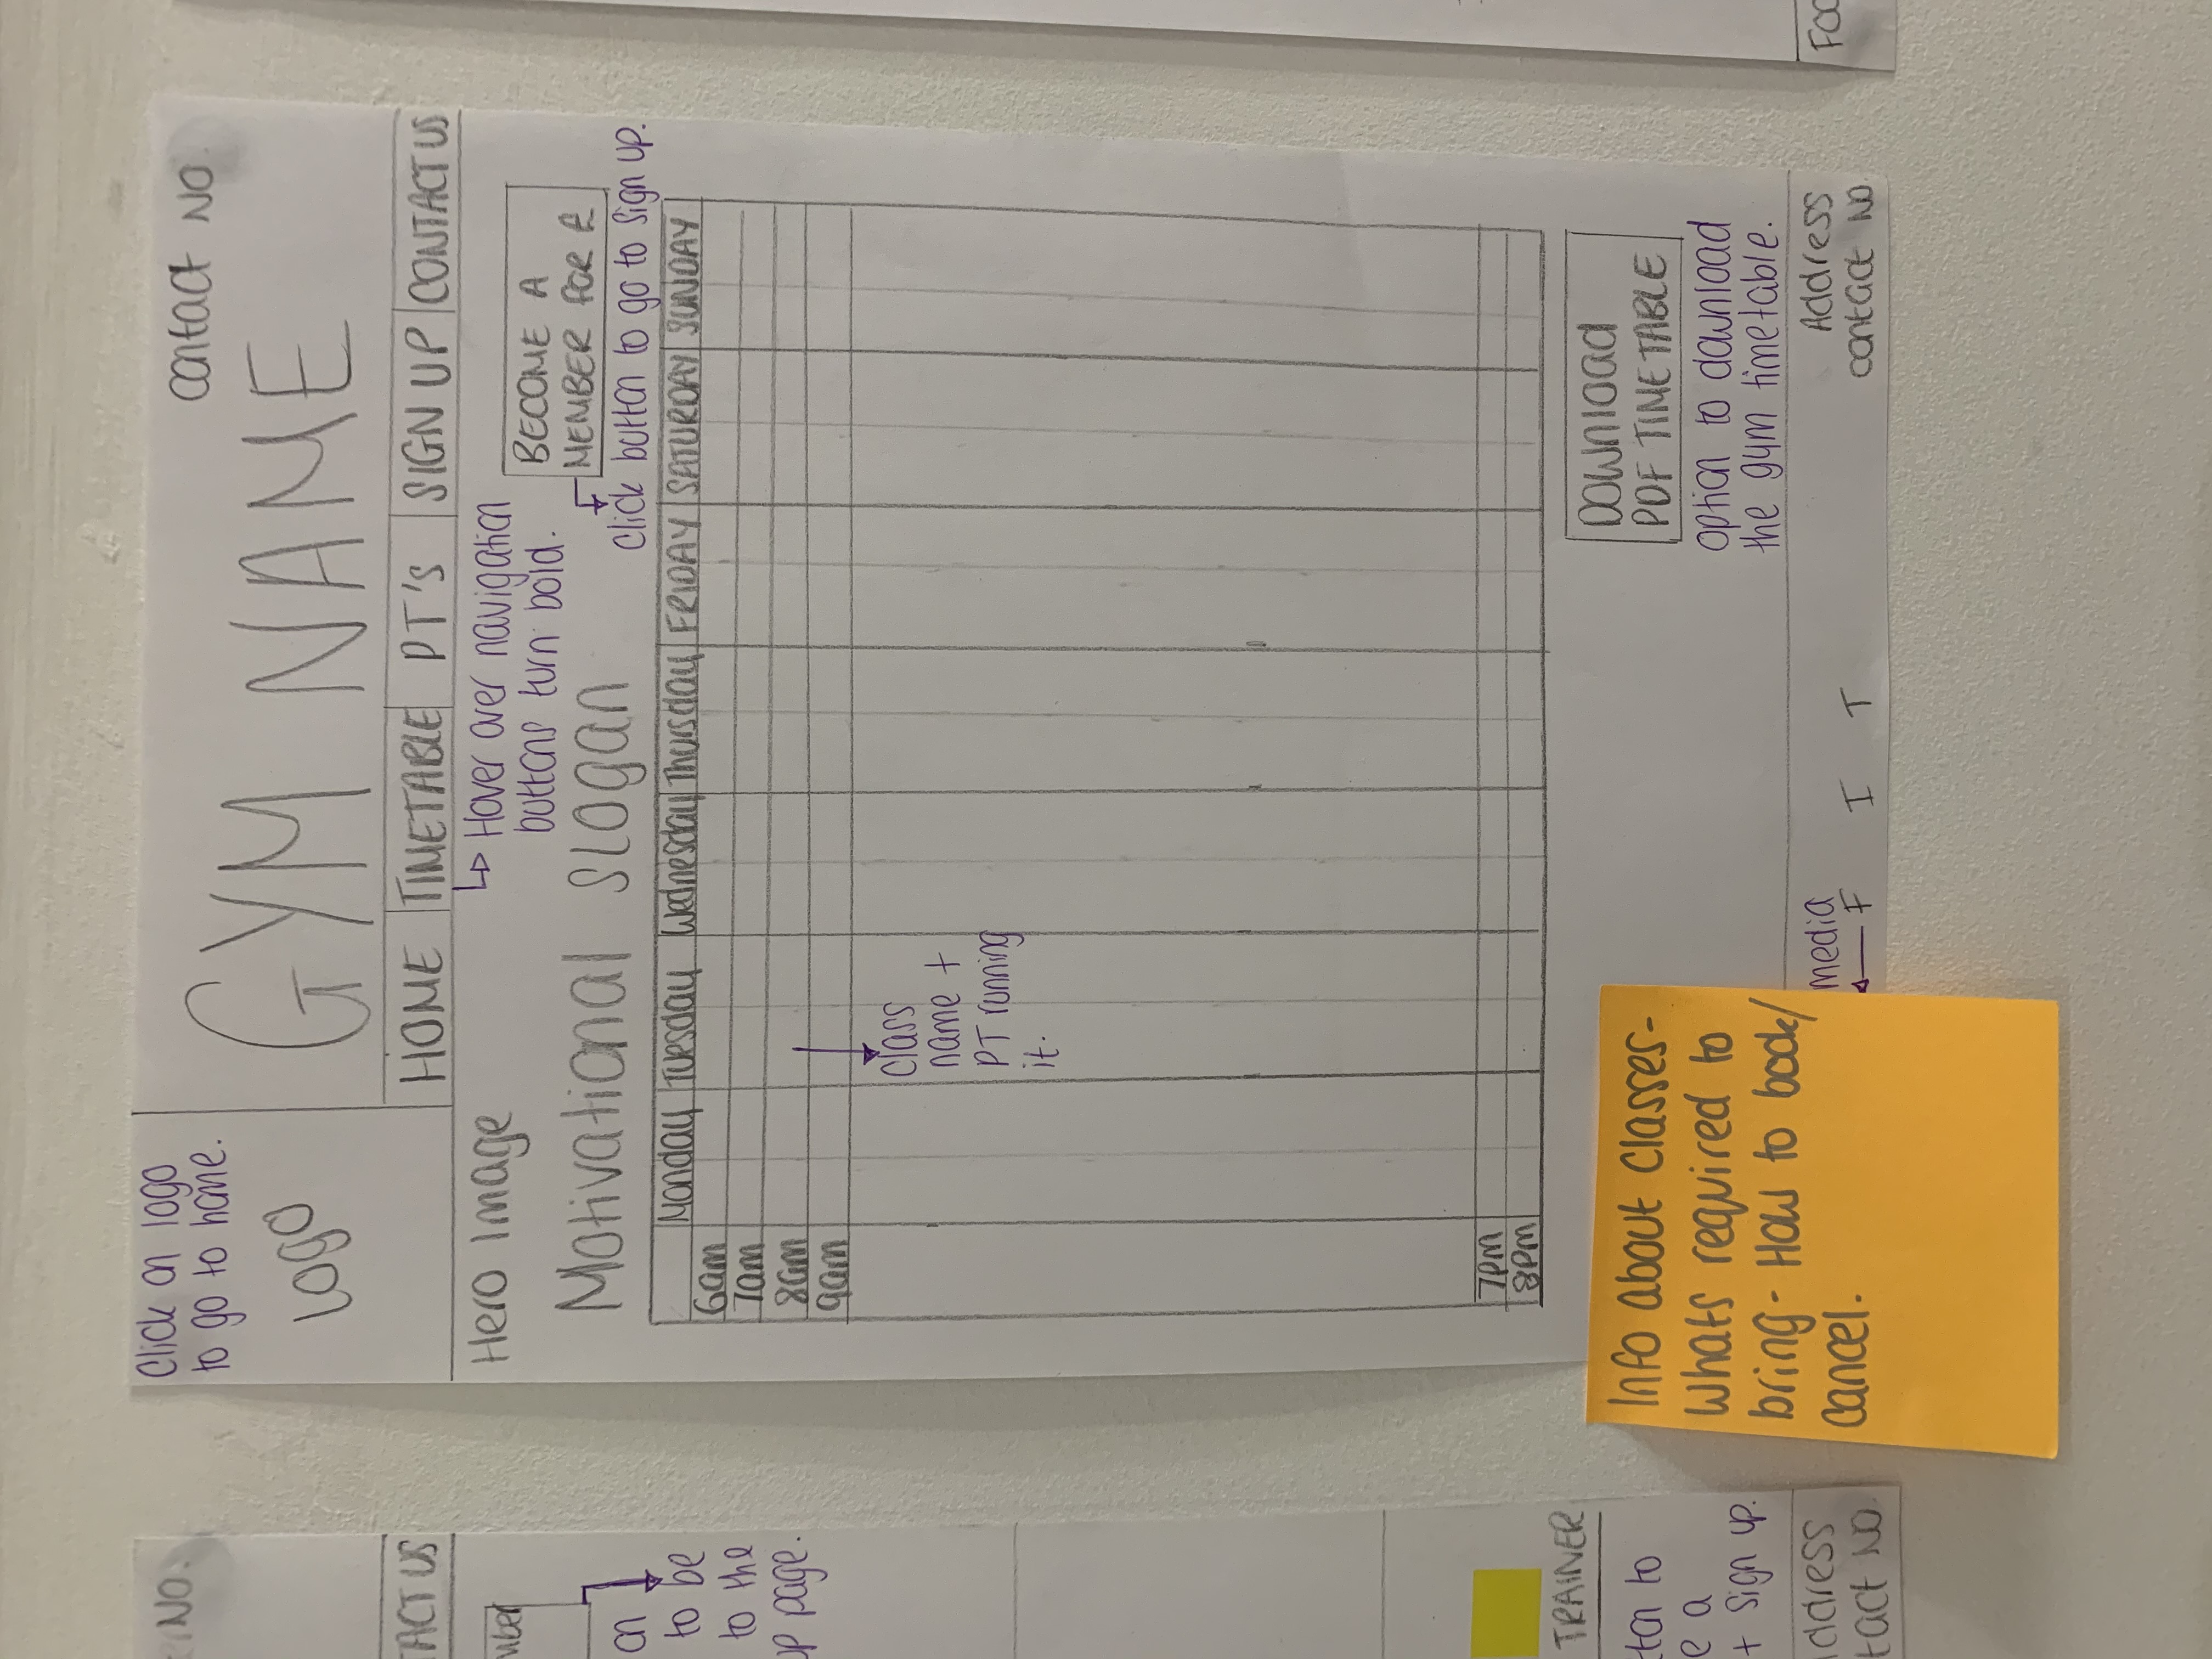 NO.
TACT US
on
to be
to the
up page.
TRAINER
to
e a
+ Sign up.
Address
tact NO
Click on logo
to go to home.
Logo
contact NO.
GYM NAME
HOME TIMETABLE PT'S SIGN UP CONTACT US
Hero Image
Hover over navigation
buttons turn bold.
BECOME A
MEMBER FOR £
Click button to go to sign up.
Motivational Slogan
Monday Tuesday Wednesday Thursday FRIDAY SATURDAY SUNDAY
6am
7am
8am
9am
Class
name +
PT running
it.
7PM
8PM
DOWNLOAD
PDF TIMETABLE
option to download
the gym timetable.
Info about classes-
Whats required to
bring- How to book/
cancel.
media
F I T
Address
contact NO
FOO